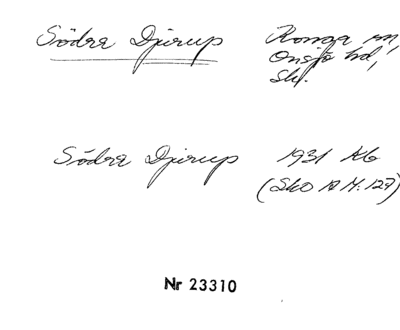 Södra Djurup Konga sn,
Onsjö hd,
Sk.
Södra Djurup 1931 Kb
(Sko 10 M: 127)
Nr 23310